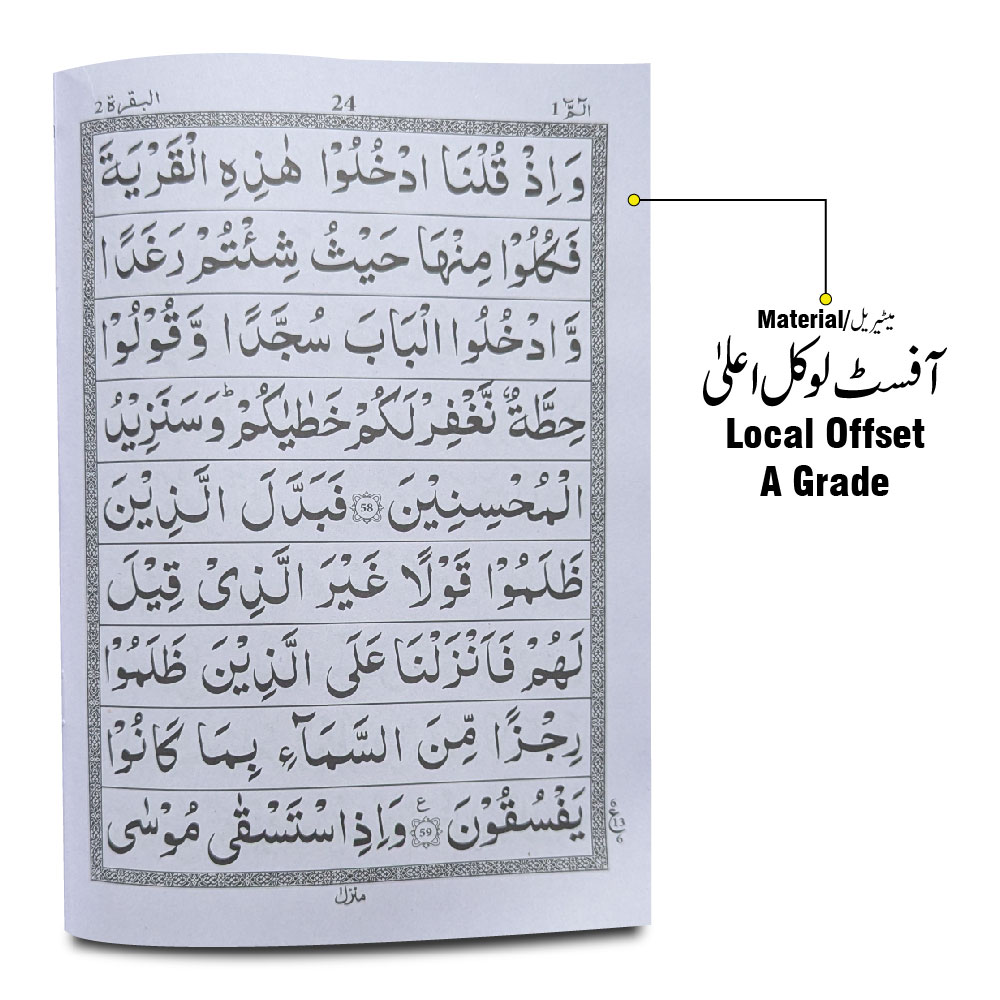 الٓمّٓ 1 24 البقرة 2
وَ اِذْ قُلْنَا ادْخُلُوْا هٰذِهِ الْقَرْيَةَ
فَكُلُوْا مِنْهَا حَيْثُ شِئْتُمْ رَغَدًا
وَّ ادْخُلُوا الْبَابَ سُجَّدًا وَّ قُوْلُوْا
حِطَّةٌ نَّغْفِرْ لَكُمْ خَطٰيٰكُمْ ؕ وَ سَنَزِيْدُ
الْمُحْسِنِيْنَ 58 فَبَدَّلَ الَّذِيْنَ
ظَلَمُوْا قَوْلًا غَيْرَ الَّذِىْ قِيْلَ
لَهُمْ فَاَنْزَلْنَا عَلَى الَّذِيْنَ ظَلَمُوْا
رِجْزًا مِّنَ السَّمَآءِ بِمَا كَانُوْا
يَفْسُقُوْنَ 59 ع وَ اِذِ اسْتَسْقٰى مُوْسٰى
منزل
Material/میٹیریل
آفسٹ لوکل اعلیٰ
Local Offset
A Grade